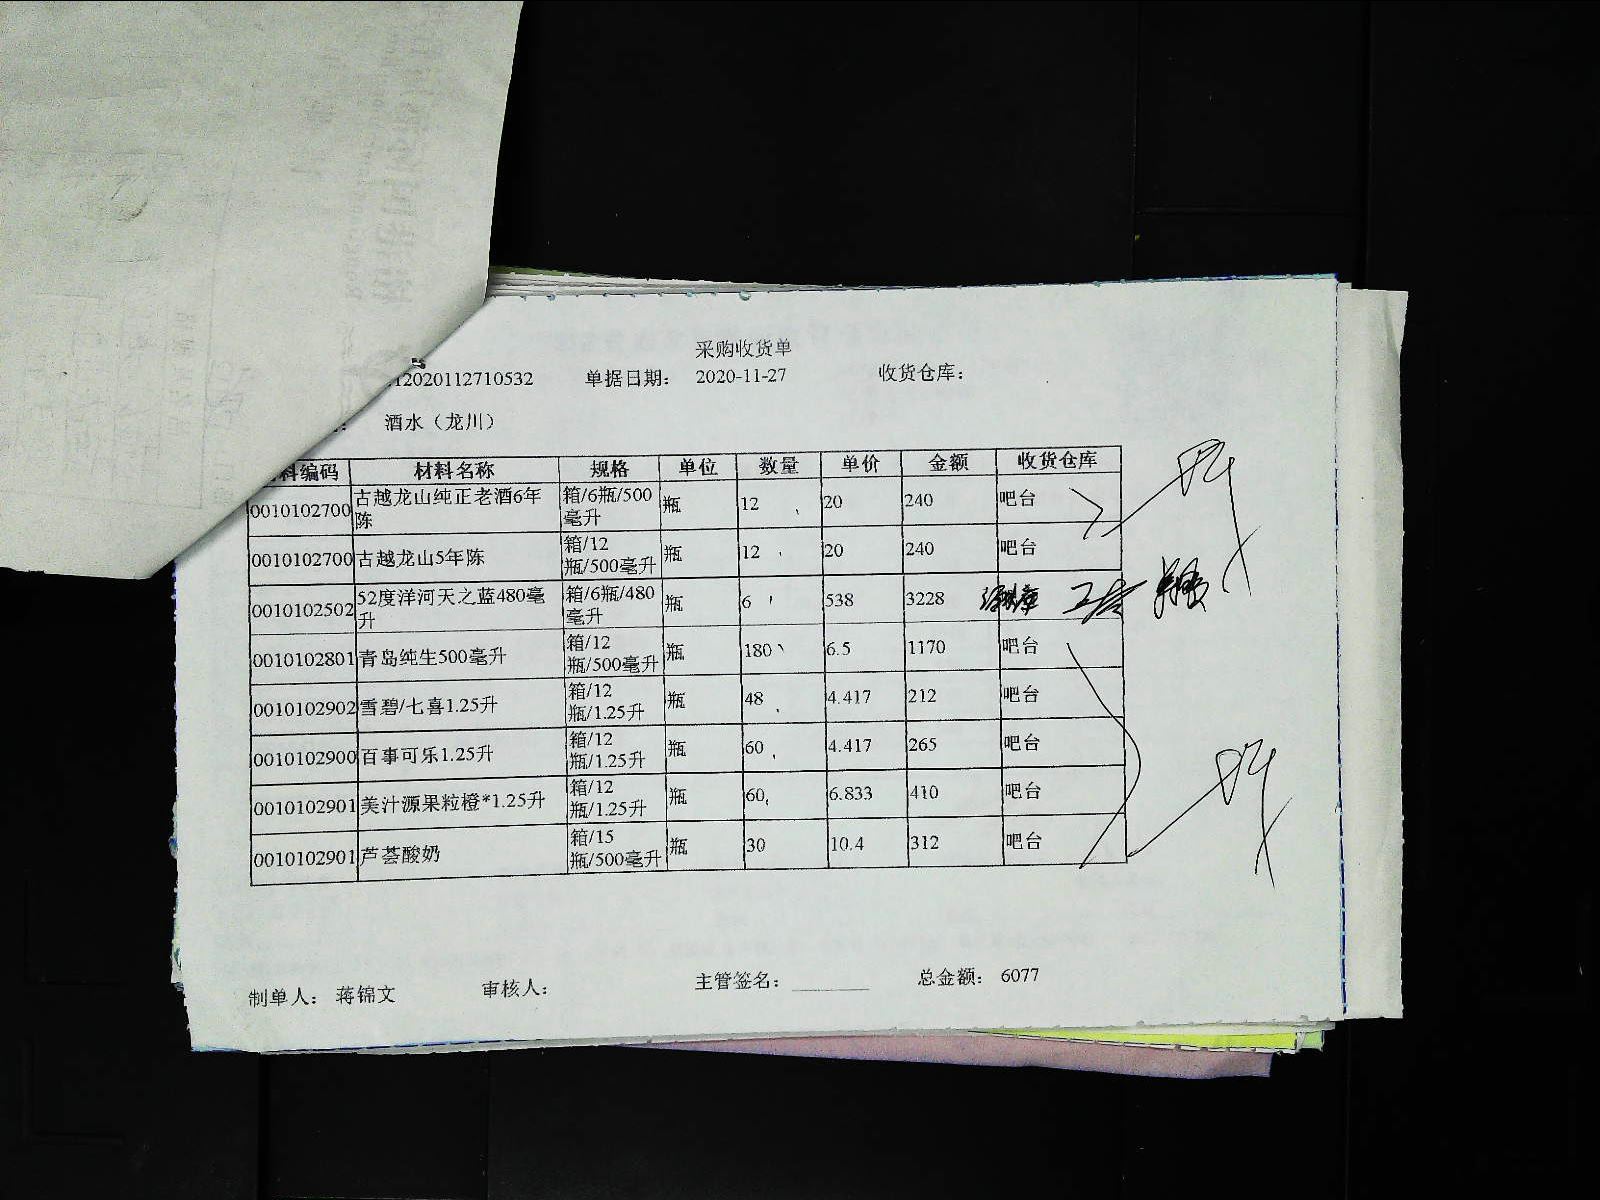 采购收货单
12020112710532 单据日期： 2020-11-27 收货仓库：
酒水（龙川）
料编码 材料名称 规格 单位 数量 单价 金额 收货仓库
0010102700 古越龙山纯正老酒6年陈 箱/6瓶/500毫升 瓶 12 20 240 吧台
0010102700 古越龙山5年陈 箱/12瓶/500毫升 瓶 12 20 240 吧台
0010102502 52度洋河天之蓝480毫升 箱/6瓶/480毫升 瓶 6 538 3228
0010102801 青岛纯生500毫升 箱/12瓶/500毫升 瓶 180 6.5 1170 吧台
0010102902 雪碧/七喜1.25升 箱/12瓶/1.25升 瓶 48 4.417 212 吧台
0010102900 百事可乐1.25升 箱/12瓶/1.25升 瓶 60 4.417 265 吧台
0010102901 美汁源果粒橙*1.25升 箱/12瓶/1.25升 瓶 60 6.833 410 吧台
0010102901 芦荟酸奶 箱/15瓶/500毫升 瓶 30 10.4 312 吧台
制单人： 蒋锦文 审核人： 主管签名： 总金额： 6077